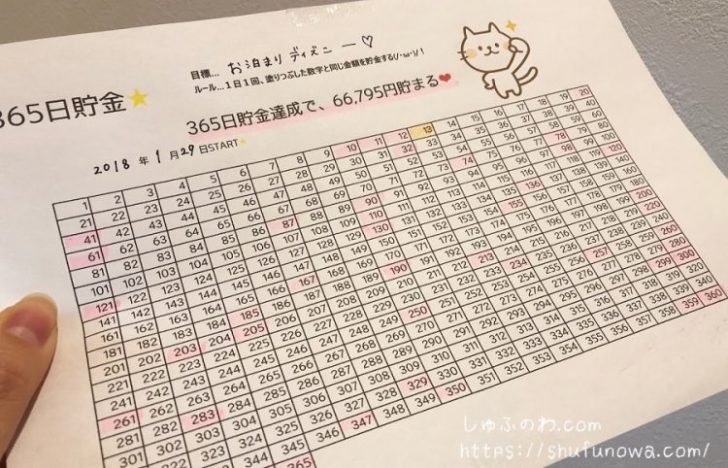 目標… お泊まりディズニー♡
ルール…1日1回、塗りつぶした数字と同じ金額を貯金する(/・ω・)/！
365日貯金
365日貯金達成で、66,795円貯まる
2018年1月29日START
1 2 3 4 5 6 7 8 9 10 11 12 13 14 15 16 17 18 19 20
21 22 23 24 25 26 27 28 29 30 31 32 33 34 35 36 37 38 39 40
41 42 43 44 45 46 47 48 49 50 51 52 53 54 55 56 57 58 59 60
61 62 63 64 65 66 67 68 69 70 71 72 73 74 75 76 77 78 79 80
81 82 83 84 85 86 87 88 89 90 91 92 93 94 95 96 97 98 99 100
101 102 103 104 105 106 107 108 109 110 111 112 113 114 115 116 117 118 119 120
121 122 123 124 125 126 127 128 129 130 131 132 133 134 135 136 137 138 139 140
141 142 143 144 145 146 147 148 149 150 151 152 153 154 155 156 157 158 159 160
161 162 163 164 165 166 167 168 169 170 171 172 173 174 175 176 177 178 179 180
181 182 183 184 185 186 187 188 189 190 191 192 193 194 195 196 197 198 199 200
201 202 203 204 205 206 207 208 209 210 211 212 213 214 215 216 217 218 219 220
221 222 223 224 225 226 227 228 229 230 231 232 233 234 235 236 237 238 239 240
241 242 243 244 245 246 247 248 249 250 251 252 253 254 255 256 257 258 259 260
261 262 263 264 265 266 267 268 269 270 271 272 273 274 275 276 277 278 279 280
281 282 283 284 285 286 287 288 289 290 291 292 293 294 295 296 297 298 299 300
301 302 303 304 305 306 307 308 309 310 311 312 313 314 315 316 317 318 319 320
321 322 323 324 325 326 327 328 329 330 331 332 333 334 335 336 337 338 339 340
346 347 348 349 350 351 352 353 354 355 356 357 358 359 360
365
しゅふのわ.com
https://shufunowa.com/